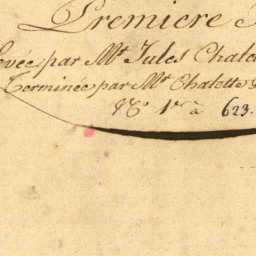 Premiere
Levée par Mr. Jules Chalet
Terminée par Mr. Chalette
No. 1er à 623.